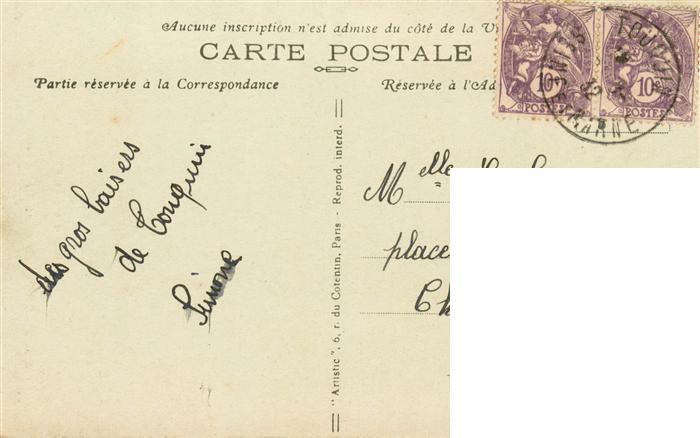 Aucune inscription n'est admise du côté de la
CARTE POSTALE
Partie réservée à la Correspondance
Réservée à l'Ad
des gros baisers
de Touquin
Simone
"Artistic", 6, r. du Cotentin, Paris - Reprod. interd.
10c 10c
POSTES POSTES
TOUQUIN
MARNE
Melle
place
Ch